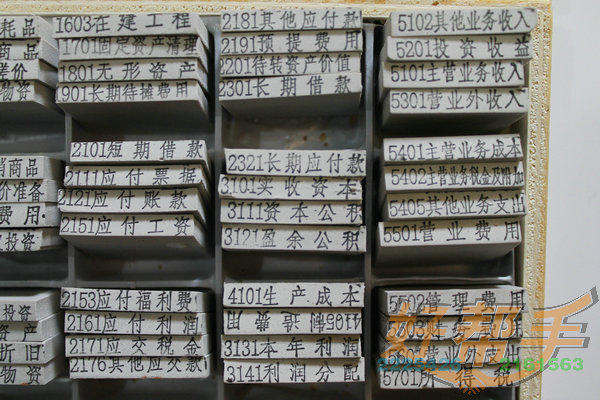 耗品
1603在建工程
1701固定资产清理
1801无形资产
1901长期待摊费用
2181其他应付款
2191预提费用
2201待转资产价值
2301长期借款
5102其他业务收入
5201投资收益
5101主营业务收入
5301营业外收入
商品
差价
物资
2101短期借款
2111应付票据
2121应付账款
2151应付工资
2321长期应付款
3101实收资本
3111资本公积
3121盈余公积
5401主营业务成本
5402主营业务税金及附加
5405其他业务支出
5501营业费用
消商品
价准备
费用
投资
2153应付福利费
2161应付利润
2171应交税金
2175其他应交款
4101生产成本
4105制造费用
3131本年利润
3141利润分配
5502管理费用
5601营业外支出
5701所得税
投资
资产
折旧
物资
帮手